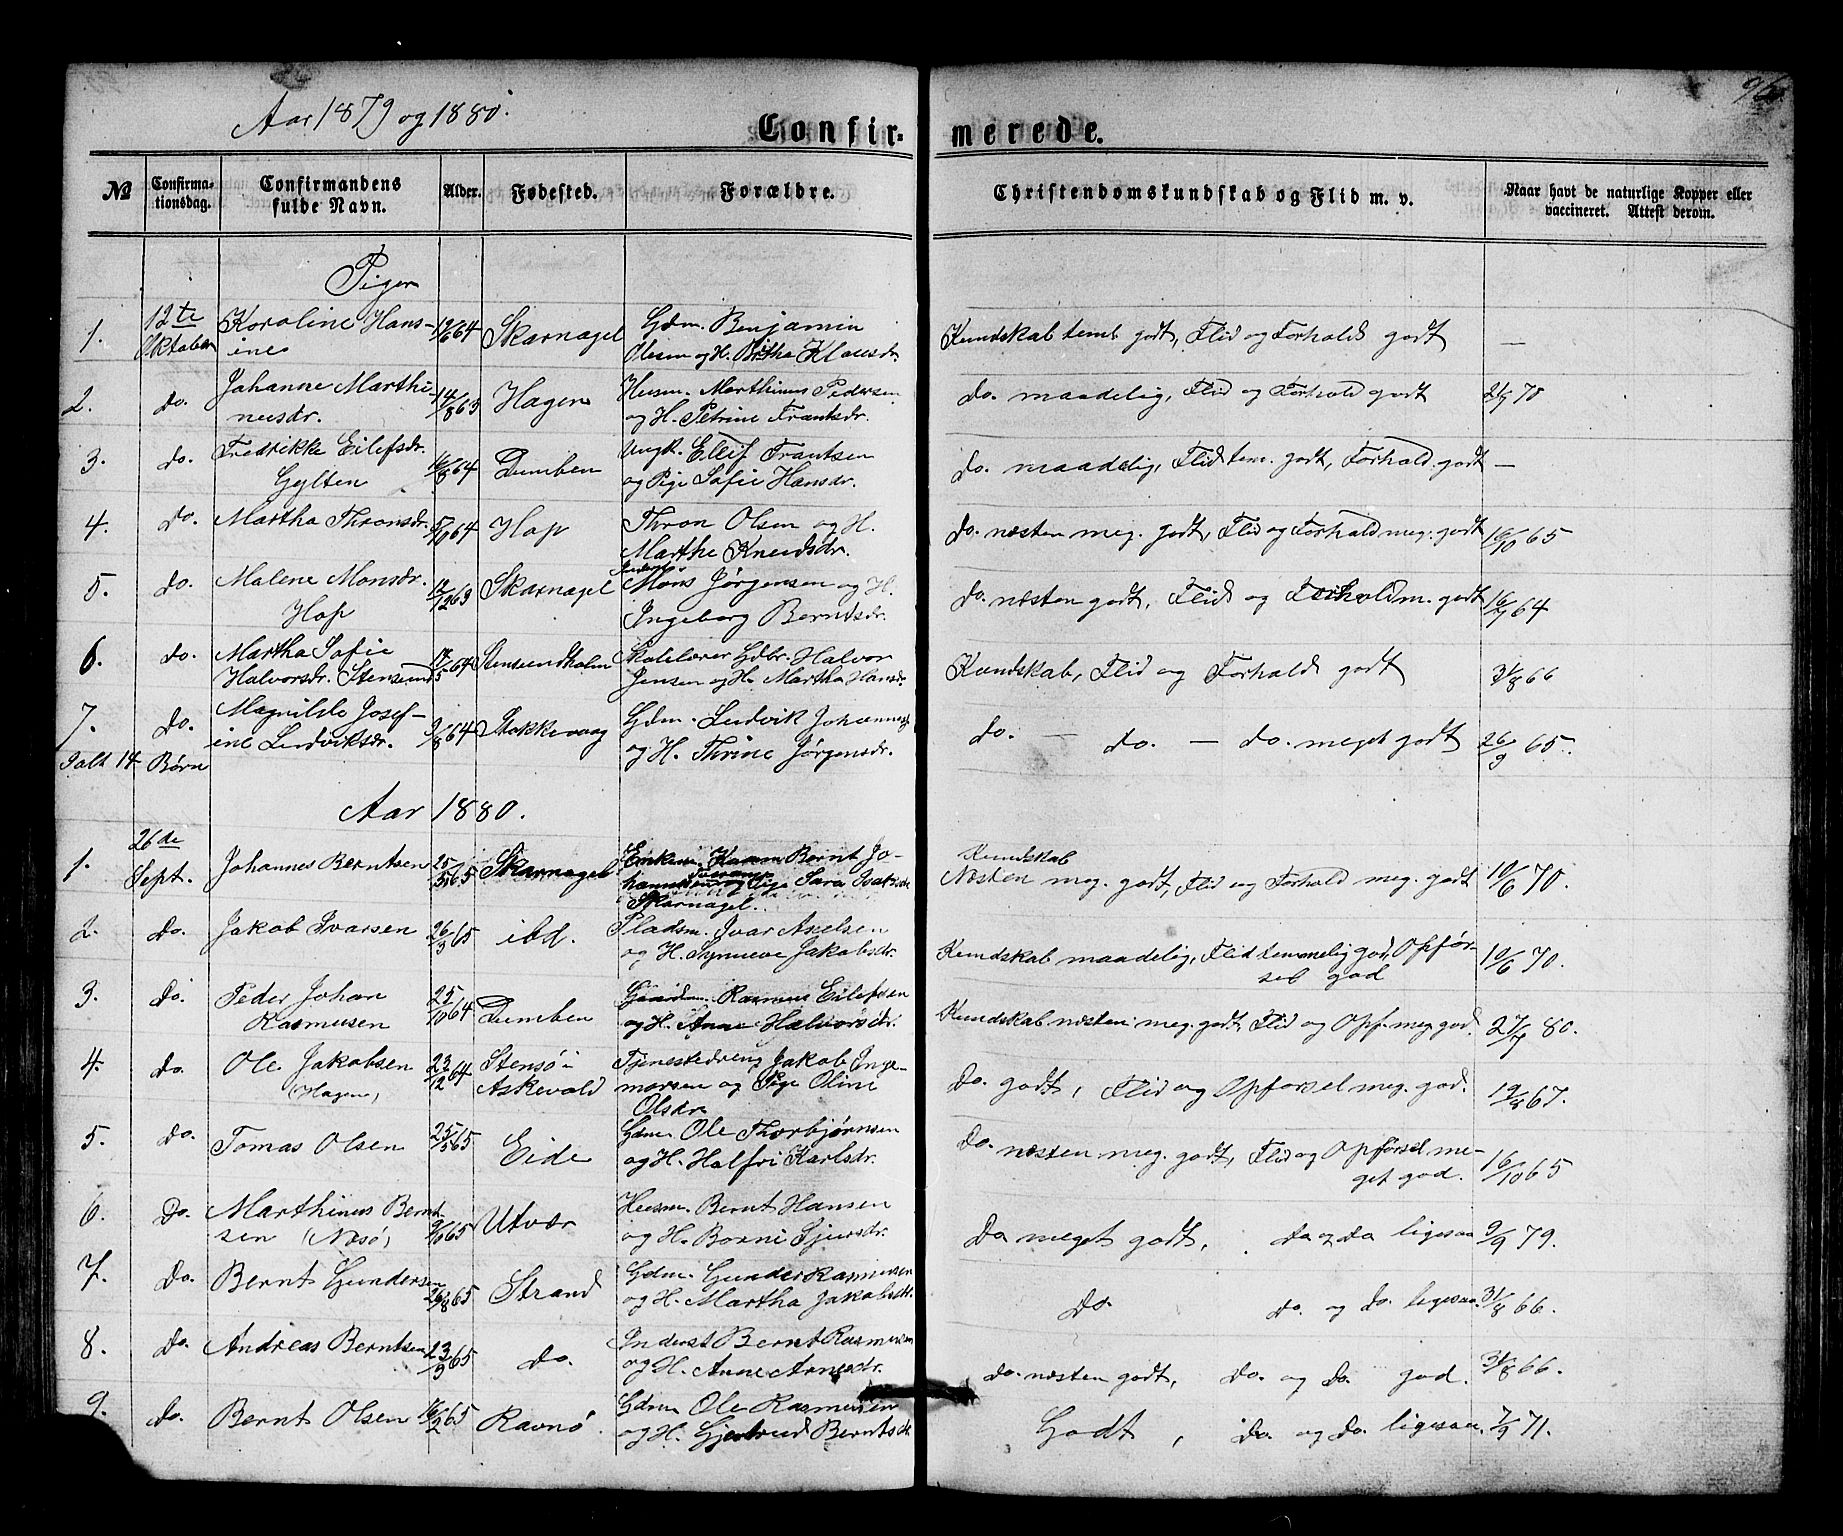 Aar 1879 og 1880.
Confir-
merede.
No
Confirma-
tionsdag.
Confirmandens
fulde Navn.
Alder.
Fødested.
Forældre.
Christendomskundskab og Flid m. v.
Naar havt de naturlige Kopper eller
vaccineret. Attest derom.
Piger
1. 12te Oktober Karoline Hans-
ine 64 Skarnagel Gdm. Benjamin
Olsen og H. Brithe Klausdr. Kundskab teml. godt, Flid og Forhold godt —
2. do. Johanne Marthi-
nusdr. 14/8 63 Hagen Husm. Marthinus Pedersen
og H. Petrine Frantsdr. do. maadelig, Flid og Forhold godt 70
3. do. Fredrikke Eilefsdr.
Gylten 64 Lumben Ungk. Ellef Frantsen
og Pige Sofie Hansdr. do. maadelig, Flid tem. godt, Forhold godt —
4. do. Martha Thronsdr. 5/10 64 Hop Thron Olsen og H.
Marthe Knudsdr. do. næsten meg. godt, Flid og Forhold meg. godt 16/10 65
5. do. Malene Monsdr.
Hop 63 Skarnagel Mons Jørgensen og H.
Ingeborg Berntsdr. do. næsten godt, Flid og Forhold m. godt 64
6. do. Martha Sofie
Halvorsdr. Stensund 64 Stensundholm Skolelærer Gdbr. Halvor
Jensen og H. Martha Hansdr. Kundskab, Flid og Forhold godt 66
7. do. Magnilde Josef-
ine Ludviksdr. 9/8 64 Stokkevaag Gdm. Ludvik Johannes
og H. Thrine Jørgensdr. do. — do. — do. meget godt 26/9 65.
Ialt 14 Børn
Aar 1880.
1. 26de Sept. Johannes Berntsen 65 Skarnagel Enkem. Bernt Jo-
hannesen og Pige Sara Isaksdr.
Skarnagel. Kundskab
Næsten meg. godt, Flid og Forhold meg. godt 10/6 70.
2. do. Jakob Ivarsen 26/3 65 ibd. Pladsm. Ivar Axelsen
og H. Synneve Jakobsdr. Kundskab maadelig, Flid temmelig god, Opfør-
sel god 10/6 70.
3. do. Peder Johan
Rasmusen 25/10 64 Lumben Gaardm. Rasmus Eilefsen
og H. Anne Halvorsdr. Kundskab næsten meg. godt, Flid og Opf. meg. god. 27/7 80.
4. do. Ole Jakobsen
(Hagen) 23/12 64 Stensø i
Askevold Tjenestedreng Jakob Inge-
morsen og Pige Oline
Olsdr. do. godt, Flid og Opførsel meg. god. 19/8 67.
5. do. Tomas Olsen 25/5 65 Eide Gdm. Ole Thorbjørnsen
og H. Halfri Karlsdr. do. næsten meg. godt, Flid og Opførsel me-
get god. 16/10 65
6. do. Marthinus Bernt-
sen (Nesø) 9/10 65 Utvær Husm. Bernt Hansen
og H. Borni Sjursdr. do meget godt, do og do ligesaa 9/9 79.
7. do. Bernt Gundersen 26/8 65 Strand Gdm. Gunder Rasmussen
og H. Martha Jakobsdr. do do. og do. ligesaa. 31/8 66.
8. do. Andreas Berntsen 23/9 65 do. Inderst Bernt Rasmussen
og H. Anne Arnesdr. do. næsten godt, do. og do. god. 31/8 66.
9. do. Bernt Olsen 16/2 65 Ravnø. Gdm Ole Rasmussen
og H. Gjertrud Berntsdr. Godt, do. og do. ligesaa. 7/9 71.